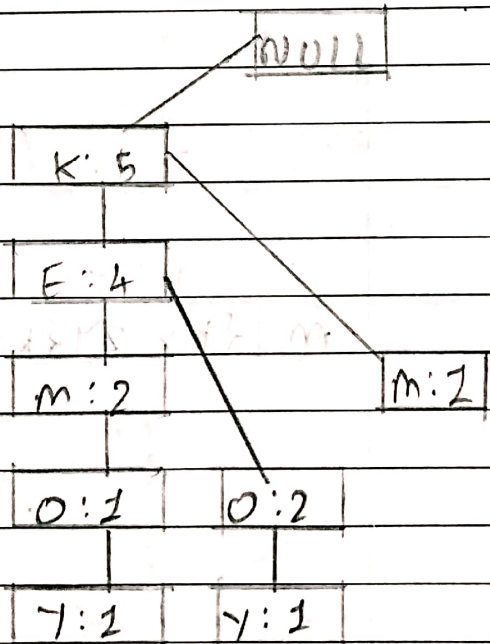 NULL
K: 5
E: 4
m: 2
m: 1
O: 1
O: 2
Y: 1
y: 1